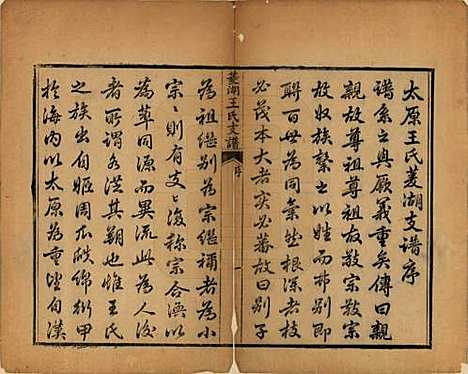 太原王氏菱湖支譜序
譜系之興厥義重矣傳曰親
親故尊祖尊祖故敬宗敬宗
故收族繫之以姓而弗別即
聯百世為同氣然根深者枝
必茂本大者實必蕃故曰別子
菱湖王氏支譜
序
為祖繼別為宗繼禰者為小
宗宗則有支支復稱宗合湊以
為華同源而異流此為人後
者所謂各洪其朔也惟王氏
之族出自姬周瓜瓞綿衍甲
於海内以太原為重望自漢